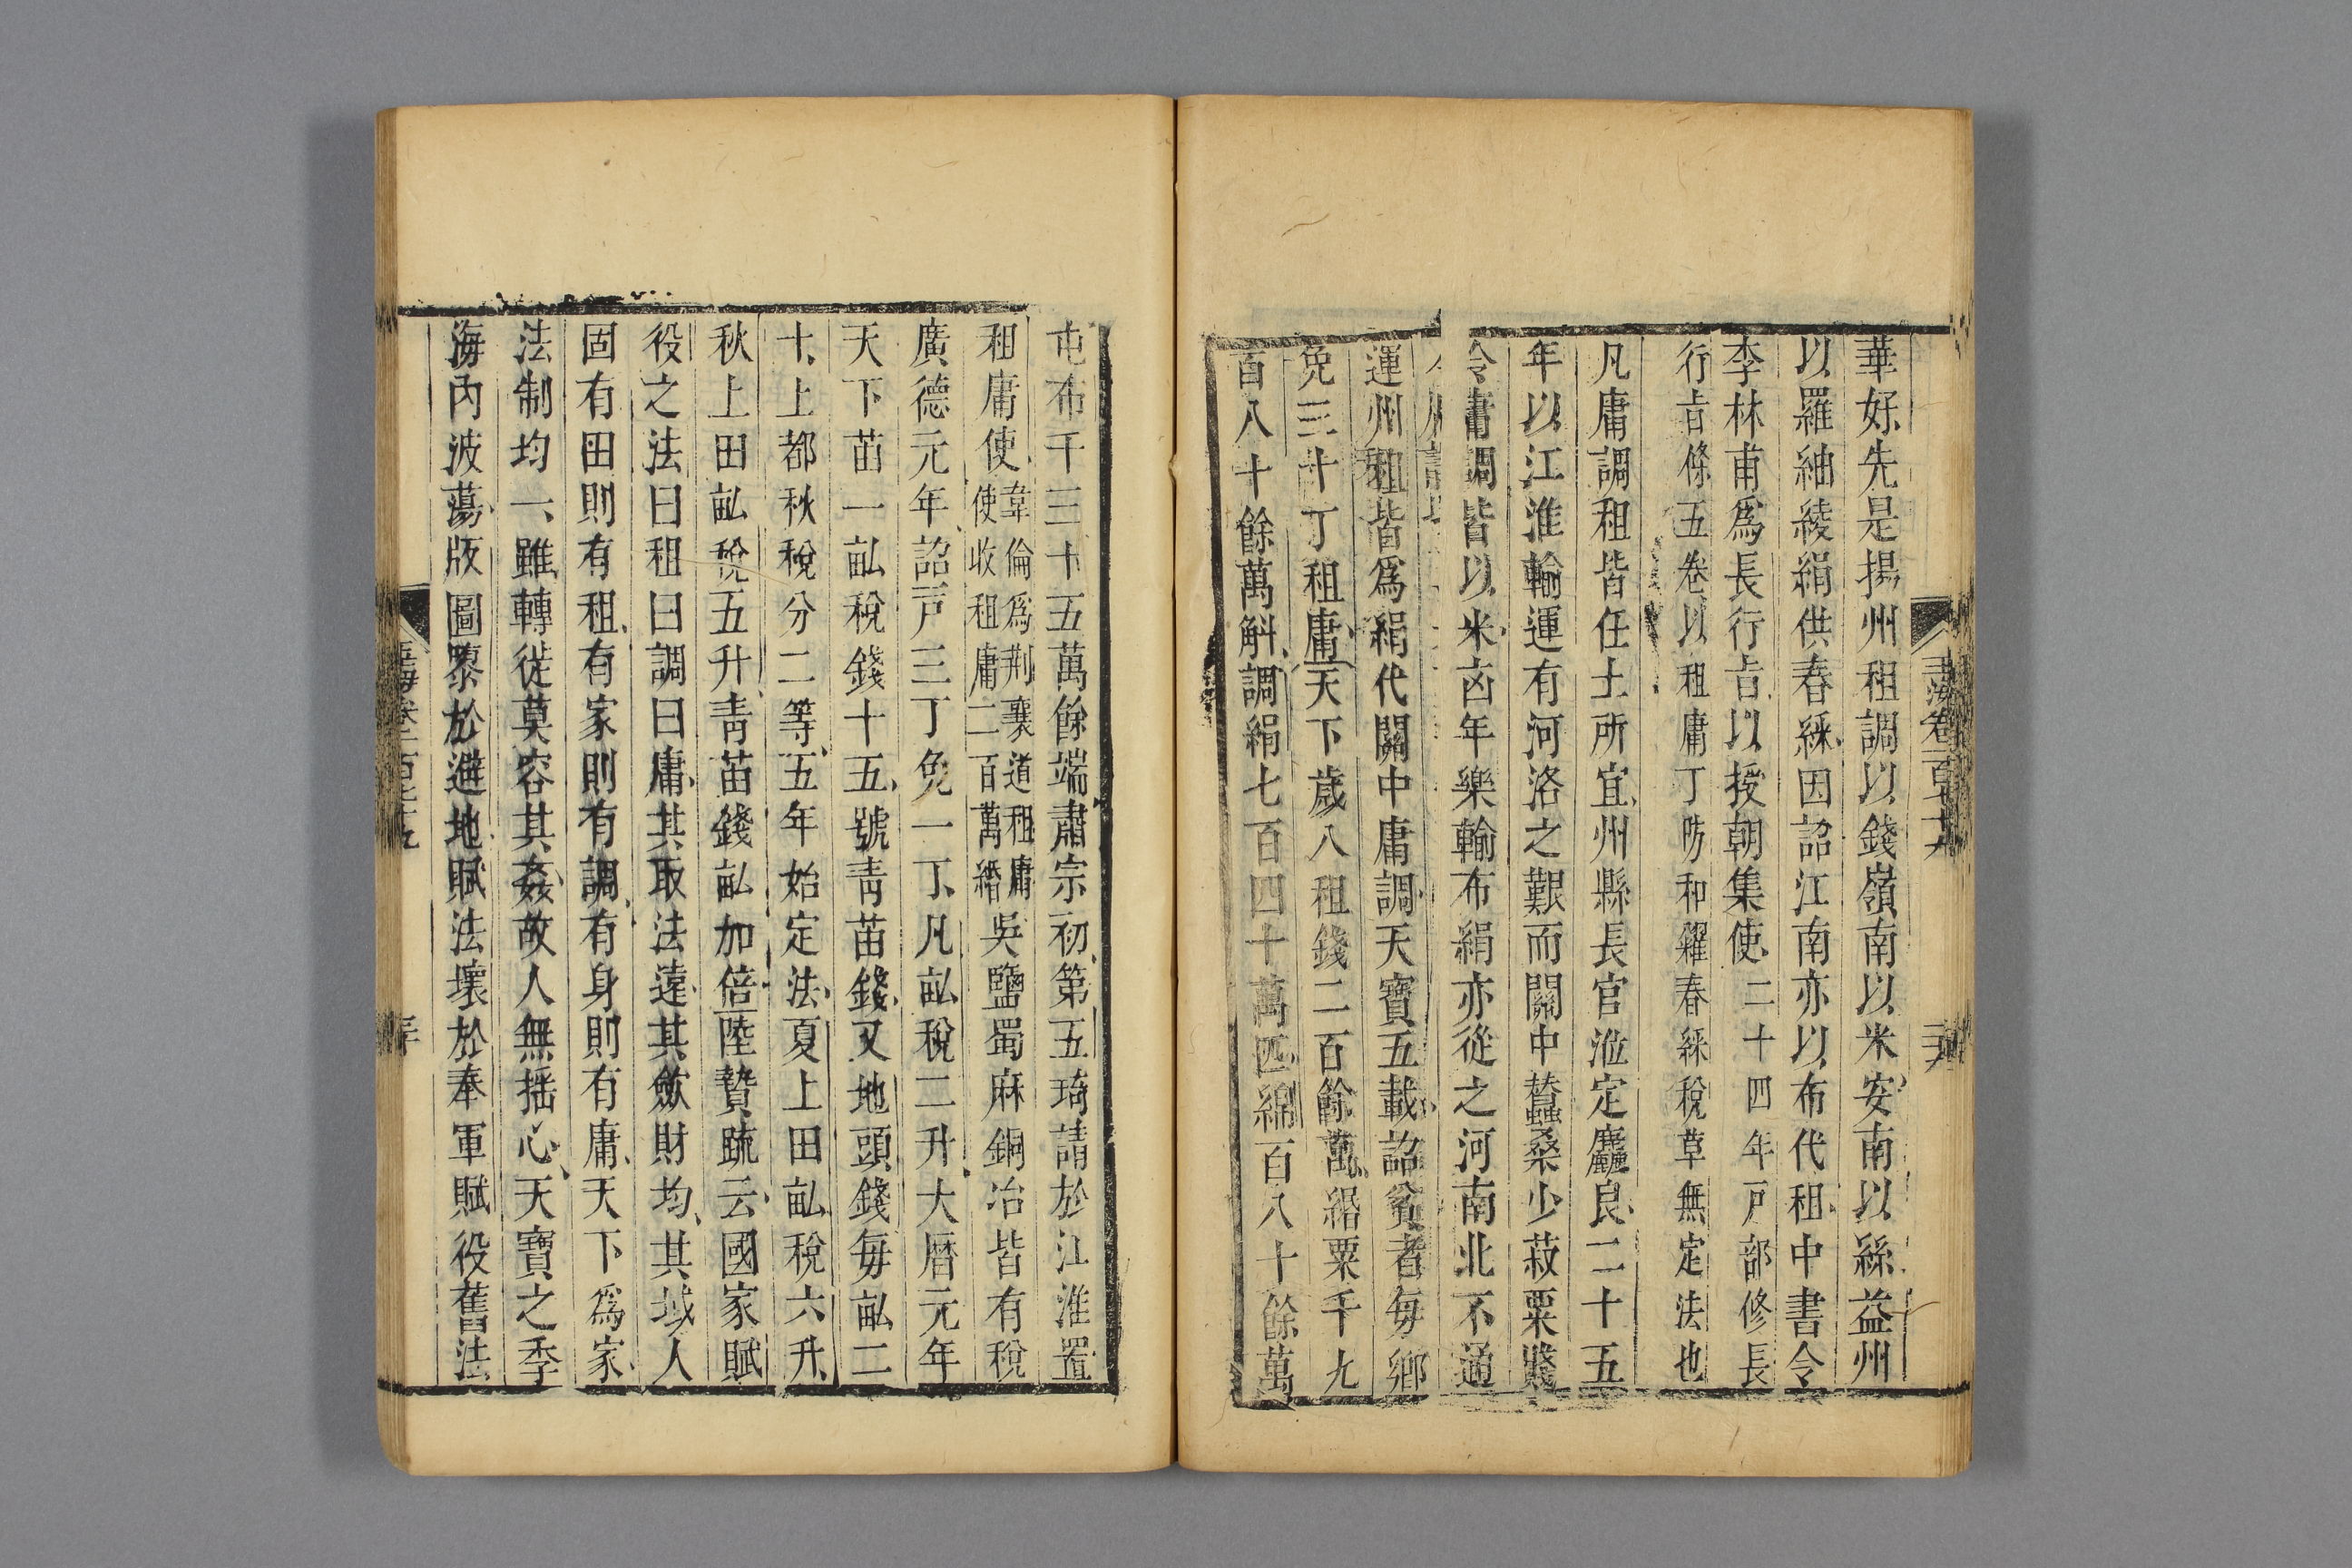 華好先是揚州租調以錢嶺南以米安南以絲益州
以羅紬綾絹供春綵因詔江南亦以布代租中書令
李林甫爲長行㫖以授朝集使二十四年戸部修長
行㫖條五卷以租庸丁防和糴春綵稅草無定法也
凡庸調租皆任土所宜州縣長官涖定麤良二十五
年以江淮輸運有河洛之艱而關中蠶桑少菽粟賤
令庸調皆以米凶年樂輸布絹亦從之河南北不通
運州租皆爲絹代關中庸調天寶五載詔貧者毎鄉
免三十丁租庸天下歲入租錢二百餘萬緡粟千九
百八十餘萬斛調絹七百四十萬匹綿百八十餘萬
屯布千三十五萬餘端肅宗初第五琦請於江淮置
租庸使韋倫爲荆襄道租庸使收租庸二百萬緡吳鹽蜀麻銅冶皆有稅
廣德元年詔一戸三丁免一丁凡畝稅二升大曆元年
天下苗一畝稅錢十五號青苗錢又地頭錢毎畝二
十上都秋稅分二等五年始定法夏上田畝稅六升
秋上田畝稅五升青苗錢畝加倍陸贄疏云國家賦
役之法曰租曰調曰庸其取法遠其斂財均其域人
固有田則有租有家則有調有身則有庸天下爲家
法制均一雖轉徙莫容其姦故人無揺心天寶之季
海内波蕩版圖隳於避地賦法壞於奉軍賦役舊法